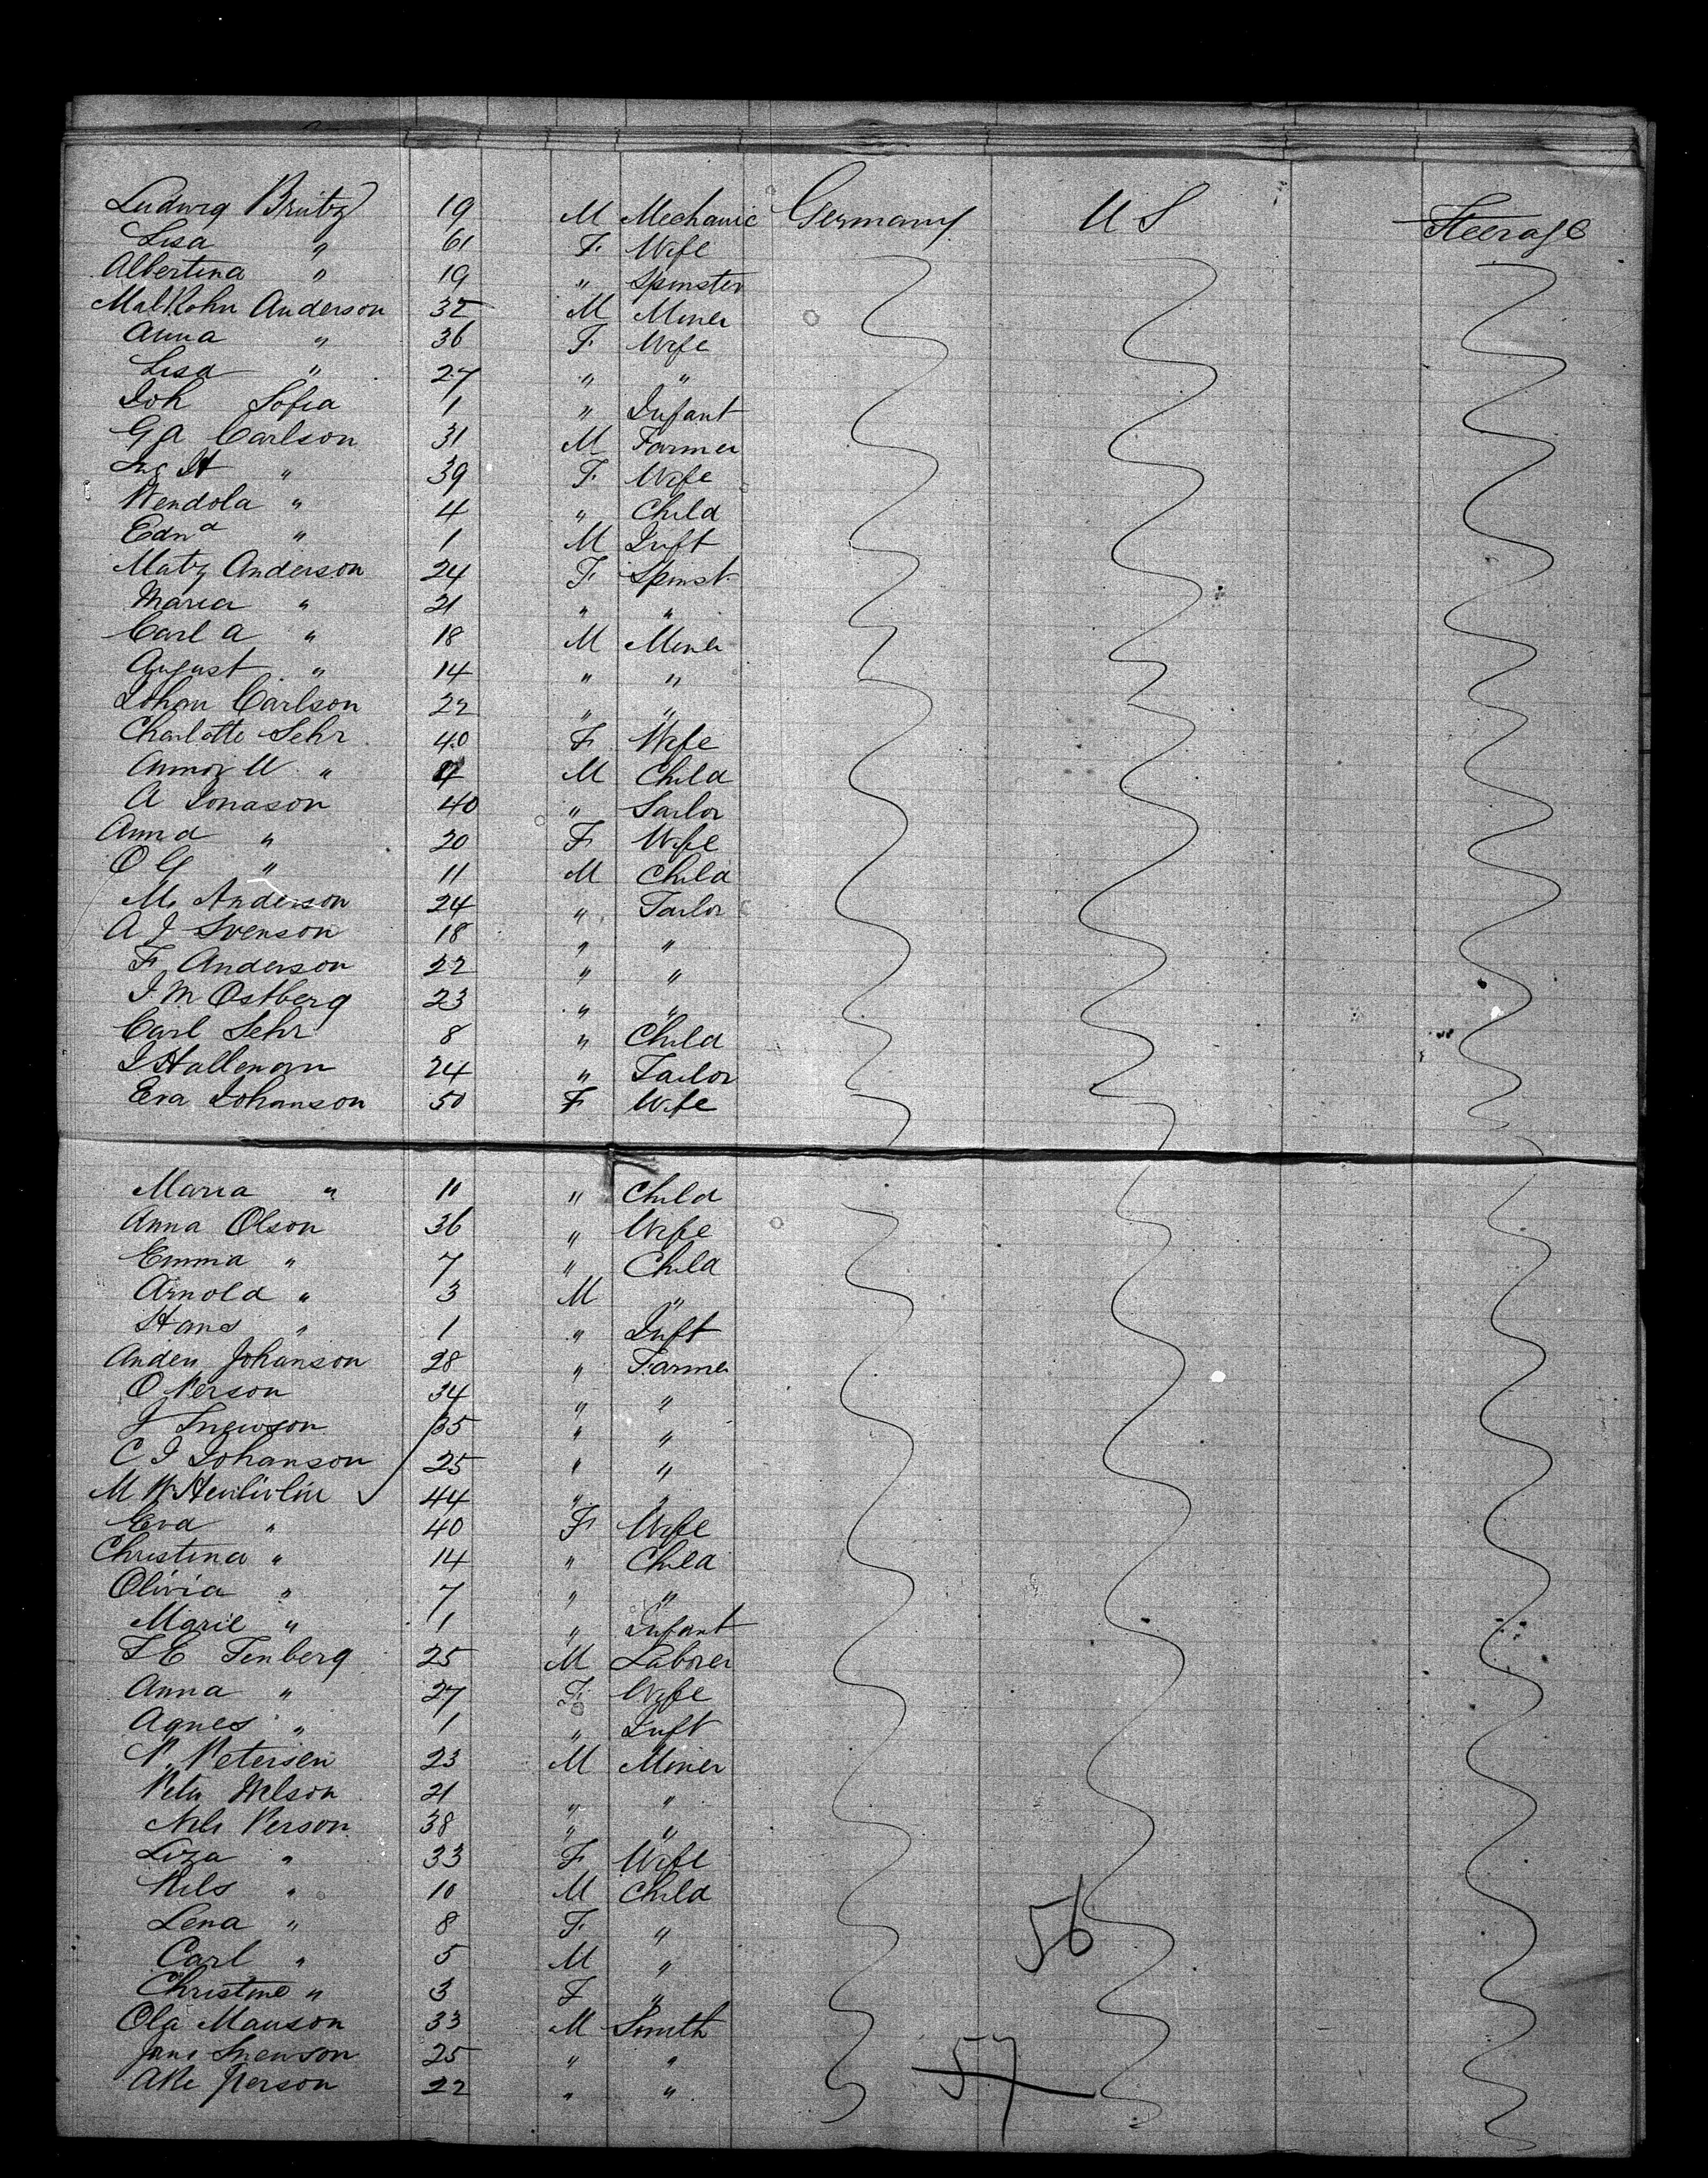 Ludwig Brutz 19 M Mechanic Germany U S Steerage
Lisa " 61 F. Wife
Albertina " 19 " Spinster
Anderson 32 M Miner
Anna " 36 F Wife
Lisa " 27 " "
Joh Sofia 1 " Infant
G A Carlson 31 M Farmer
" 39 F. Wife
Wendola " 4 " Child
Edna " 1 M Inft
Matz Anderson 24 F. Spinst.
Maria " 21 " "
Carl A " 18 M Miner
August " 14 " "
Johan Carlson 22 " "
Charlotte Sehr 40 F Wife
" 4 M Child
A Jonason 40 " Tailor
Anna " 20 F Wife
O G " 11 M Child
M. Anderson 24 " Tailor
A J Svenson 18 " "
F Anderson 22 " "
J. M Ostberg 23 " "
Carl Sehr 8 " Child
J Halleman 24 " Tailor
Eva Johanson 50 F Wife
Maria " 11 " Child
Anna Olson 36 " Wife
Emma " 7 " Child
Arnold " 3 M "
Hans " 1 " Inft
Anders Johanson 28 " Farmer
O Person 34 " "
J Svenson 35 " "
C J Johanson 25 " "
M 44 " "
Eva " 40 F Wife
Christina " 14 " Child
Olivia " 7 " "
Marie " 1 " Infant
T E Tenberg 25 M Laborer
Anna " 27 F. Wife
Agnes " 1 " Inft
P. Petersen 23 M Miner
Peter Nelson 21 " "
Nels Person 38 " "
Liza " 33 F Wife
Nels " 10 M Child
Lena " 8 F. "
Carl " 5 M "
Christine " 3 F "
56
Ola Manson 33 M Smith
Jans Svenson 25 " "
57
Ake Person 22 " "